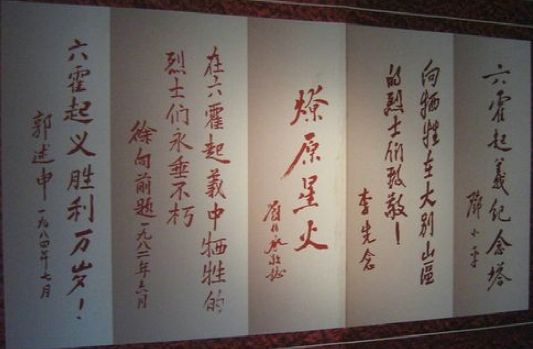 六霍起義纪念塔
鄧小平
向牺牲在大别山區
的烈士们致敬！
李先念
燎原星火
劉伯承敬题
在六霍起義中牺牲的
烈士们永垂不朽
徐向前题 一九八二年六月
六霍起义胜利万岁！
郭述申 一九八四年七月